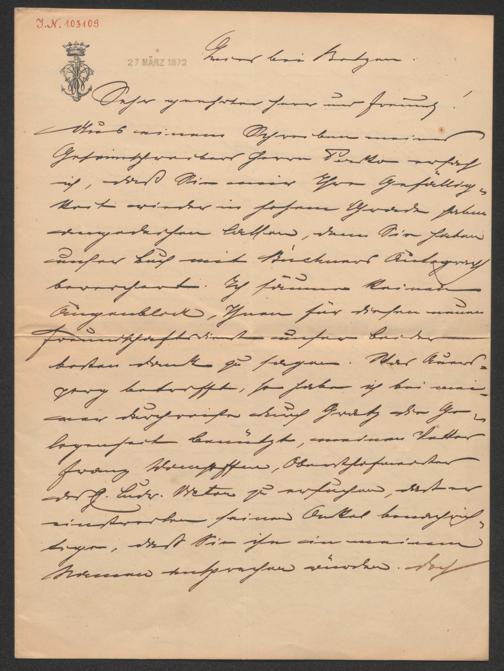 J.N. 103109
27 MÄRZ 1872
Gries bei Botzen.
Sehr geehrter Herr und Freund!
Aus einem Schreiben meines
Geheimschreibers Herrn erfah
ich, daß Sie mir Ihre Gefällig-
keit wieder in hohem Grade haben
angedeihen lassen, denn Sie haben
unser Buch mit Büchners Autograf
bereichert. Ich säume keinen
Augenblick, Ihnen für diesen neuen
Freundschaftsdienst unser beider
besten Dank zu sagen. Was Auers-
perg betrifft, so habe ich bei mei-
ner Durchreise durch Gratz die Ge-
legenheit benützt, meinen Vetter
Franz Wimpffen, Obersthofmeister
des zu ersuchen, dass er
einstweilen seinen Onkel benachrich-
tige, daß Sie ihn in meinem
Namen ansprechen würden. Doch